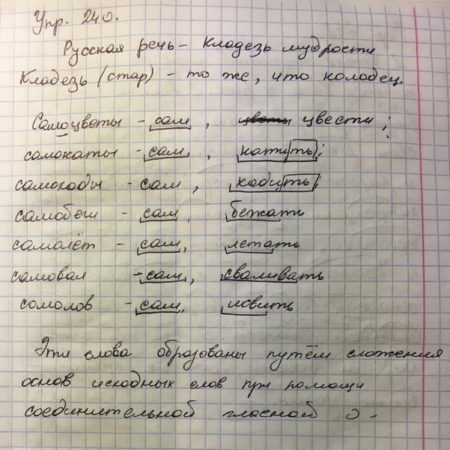 Упр. 240.
Русская речь – кладезь мудрости
Кладезь (стар) – то же, что колодец.
Самоцветы – сам, цветы цвести;
самокаты – сам, катить;
самоходы – сам, ходить,
самобеги – сам, бежать
самолёт – сам, летать
самовал – сам, сваливать
сомолов – сам, ловить
Эти слова образованы путём сложения
основ исходных слов при помощи
соединительной гласной о-